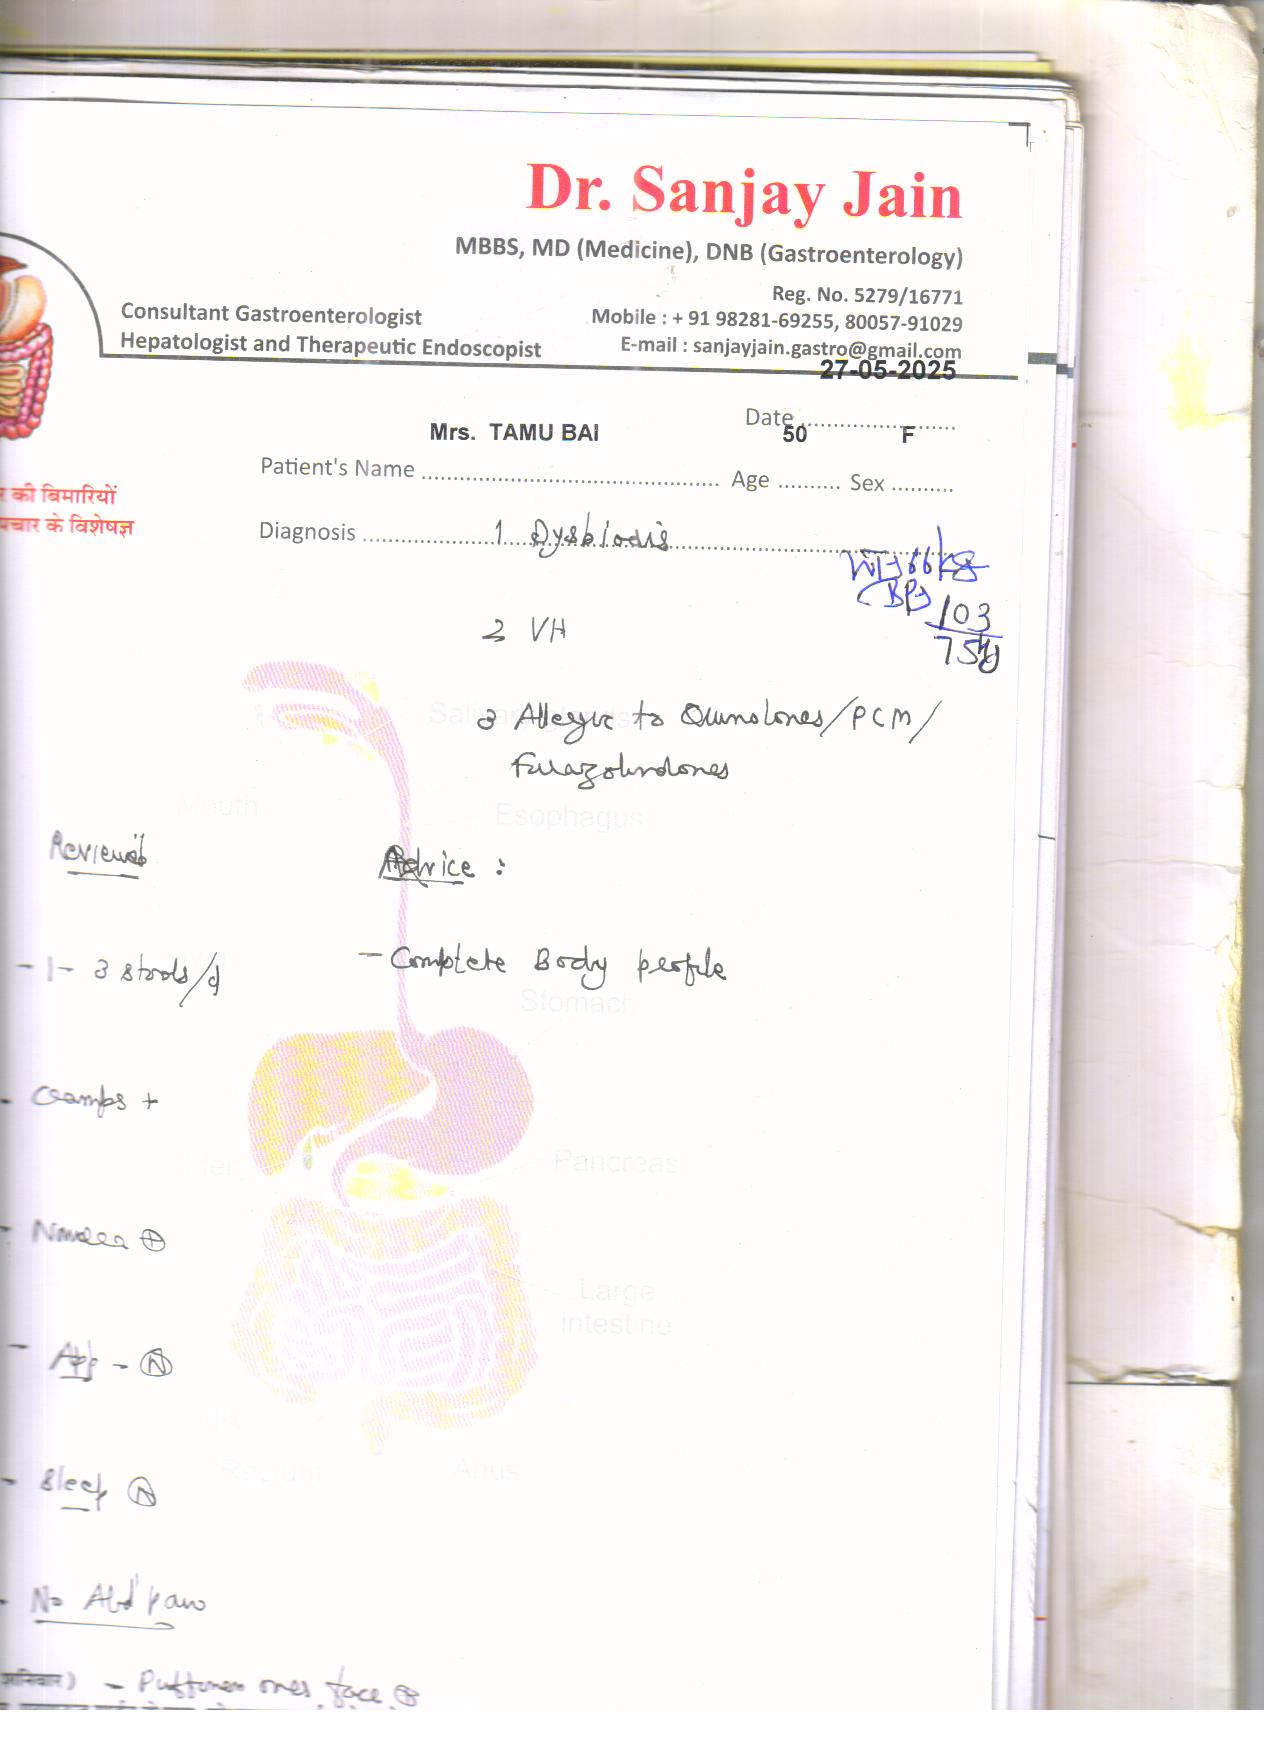 Dr. Sanjay Jain
MBBS, MD (Medicine), DNB (Gastroenterology)
Reg. No. 5279/16771
Consultant Gastroenterologist
Mobile : + 91 98281-69255, 80057-91029
Hepatologist and Therapeutic Endoscopist
E-mail : sanjayjain.gastro@gmail.com
27-05-2025
Date
Mrs. TAMU BAI 50 F
Patient's Name Age Sex
की बिमारियों
चार के विशेषज्ञ
Diagnosis 1 Dysbiosis
Wt 66 kg
BP 103
75
2 VH
3 Allergic to Quinolones/PCM/
Furazolindones
Salivary glands
Mouth
Esophagus
Reviewed
Advice :
- 1- 3 stools/d
- Complete Body profile
Stomach
- Cramps +
Pancreas
- Nausea ⊕
Large
intestine
- App - Ⓝ
Rectum Anus
- Sleep Ⓝ
- No Abd pain
अनिवार) - Puffiness ones face ⊕